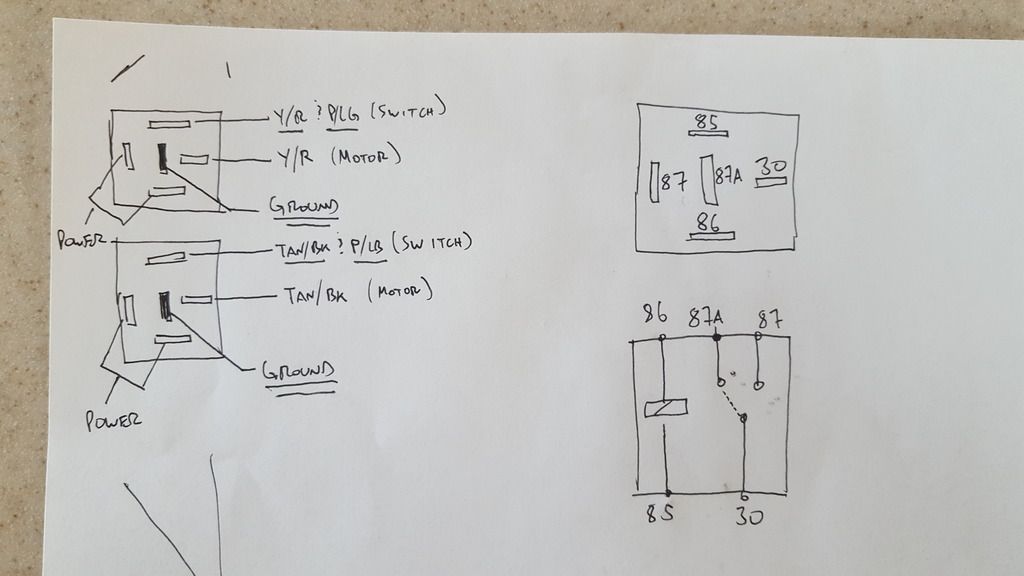 Y/R & P/LG (SWITCH)
Y/R (MOTOR)
GROUND
POWER
TAN/BK & P/LB (SWITCH)
TAN/BK (MOTOR)
GROUND
POWER
85
87 87A 30
86
86 87A 87
85 30